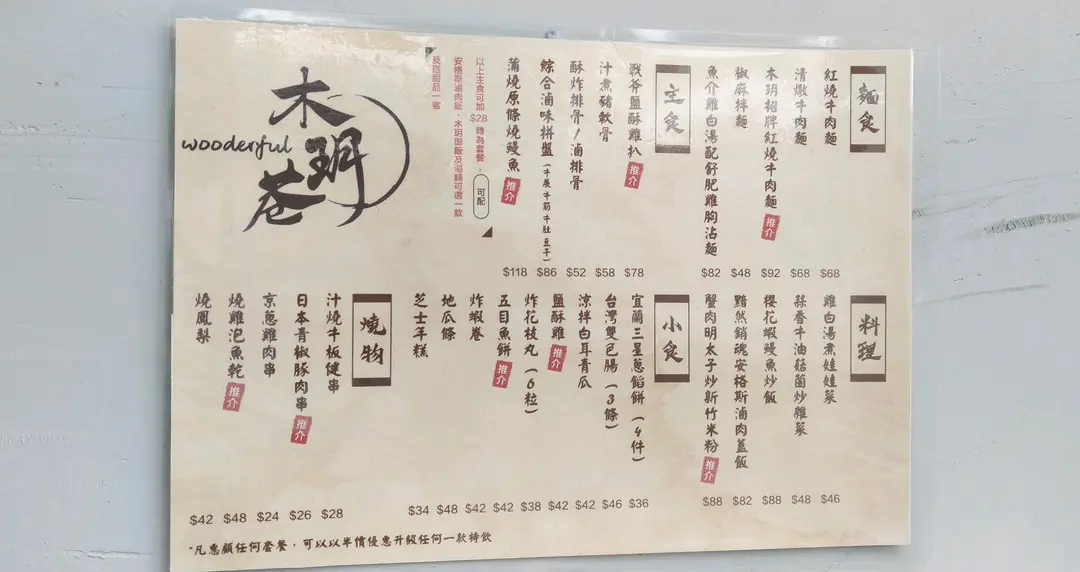 麵食
紅燒牛肉麵 $68
清燉牛肉麵 $68
木玥招牌紅燒牛肉麵 推介 $92
椒麻拌麵 $48
魚介雞白湯配舒肥雞胸沾麵 $82
主食
戰斧鹽酥雞扒 推介 $78
汁煮豬軟骨 $58
酥炸排骨/滷排骨 $52
綜合滷味拼盤(牛展牛筋牛肚豆干) $86
蒲燒原條燒鰻魚 推介 $118
以上主食可加$28 轉為套餐,可配
安格斯滷肉飯,木玥御飯及湯麵可選一款
甜品一客
木玥巷
wooderful
料理
雞白湯煮娃娃菜 $46
蒜香牛油菇菌炒雜菜 $48
櫻花蝦鰻魚炒飯 $88
黯然銷魂安格斯滷肉蓋飯 $82
蟹肉明太子炒新竹米粉 推介 $88
小食
宜蘭三星蔥餡餅(4件) $36
台灣雙色腸(3條) $46
涼拌白耳青瓜 $42
鹽酥雞 推介 $42
炸花枝丸(6粒) $38
五目魚餅 推介 $42
炸蝦卷 $42
地瓜條 $48
芝士年糕 $34
燒物
汁燒牛板健串 $28
日本青椒豚肉串 推介 $26
京蔥雞肉串 $24
燒雞泡魚乾 推介 $48
燒鳳梨 $42
*凡惠顧任何套餐,可以以半價優惠升級任何一款特飲